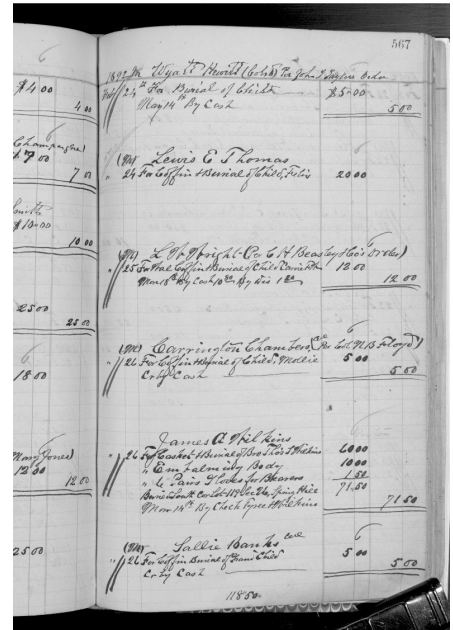 $4 00
4 00
Champagne)
$7 00
7 00
$10.00
10 00
25 00
25 00
18 00
Mary Jones)
12 00
12 00
25 00
567
1892 Mr Wyatt Hewitt (Cold) Per John Taylors Order
24th For Burial of Child $5.00
May 14th By Cash 5 00
(Mr) Lewis E Thomas
24 For Coffin & Burial of Child, 20 00
(Mr) L W Wright Per C H Beasley &
25 For Wal Coffin & Burial of Child 12 00
Mar 18th By Cash 12 00
(Mr) Carrington Chambers, Per Col. N B Floyd)
26 For Coffin & Burial of Child, Mollie 5 00
Cr By Cash 5 00
James A Wilkins
" 26 For Casket & Burial of Bro Wilkins 60 00
" Embalming Body 10 00
" 6 Pairs Gloves for Bearers 1 50
71.50
Spring Hill
Mar 14th By Check Tyree & Wilkins 71 50
(Mr) Sallie Banks col
" 26 For Coffin Burial of Child 5 00
Cr By Cash 5 00
118 50